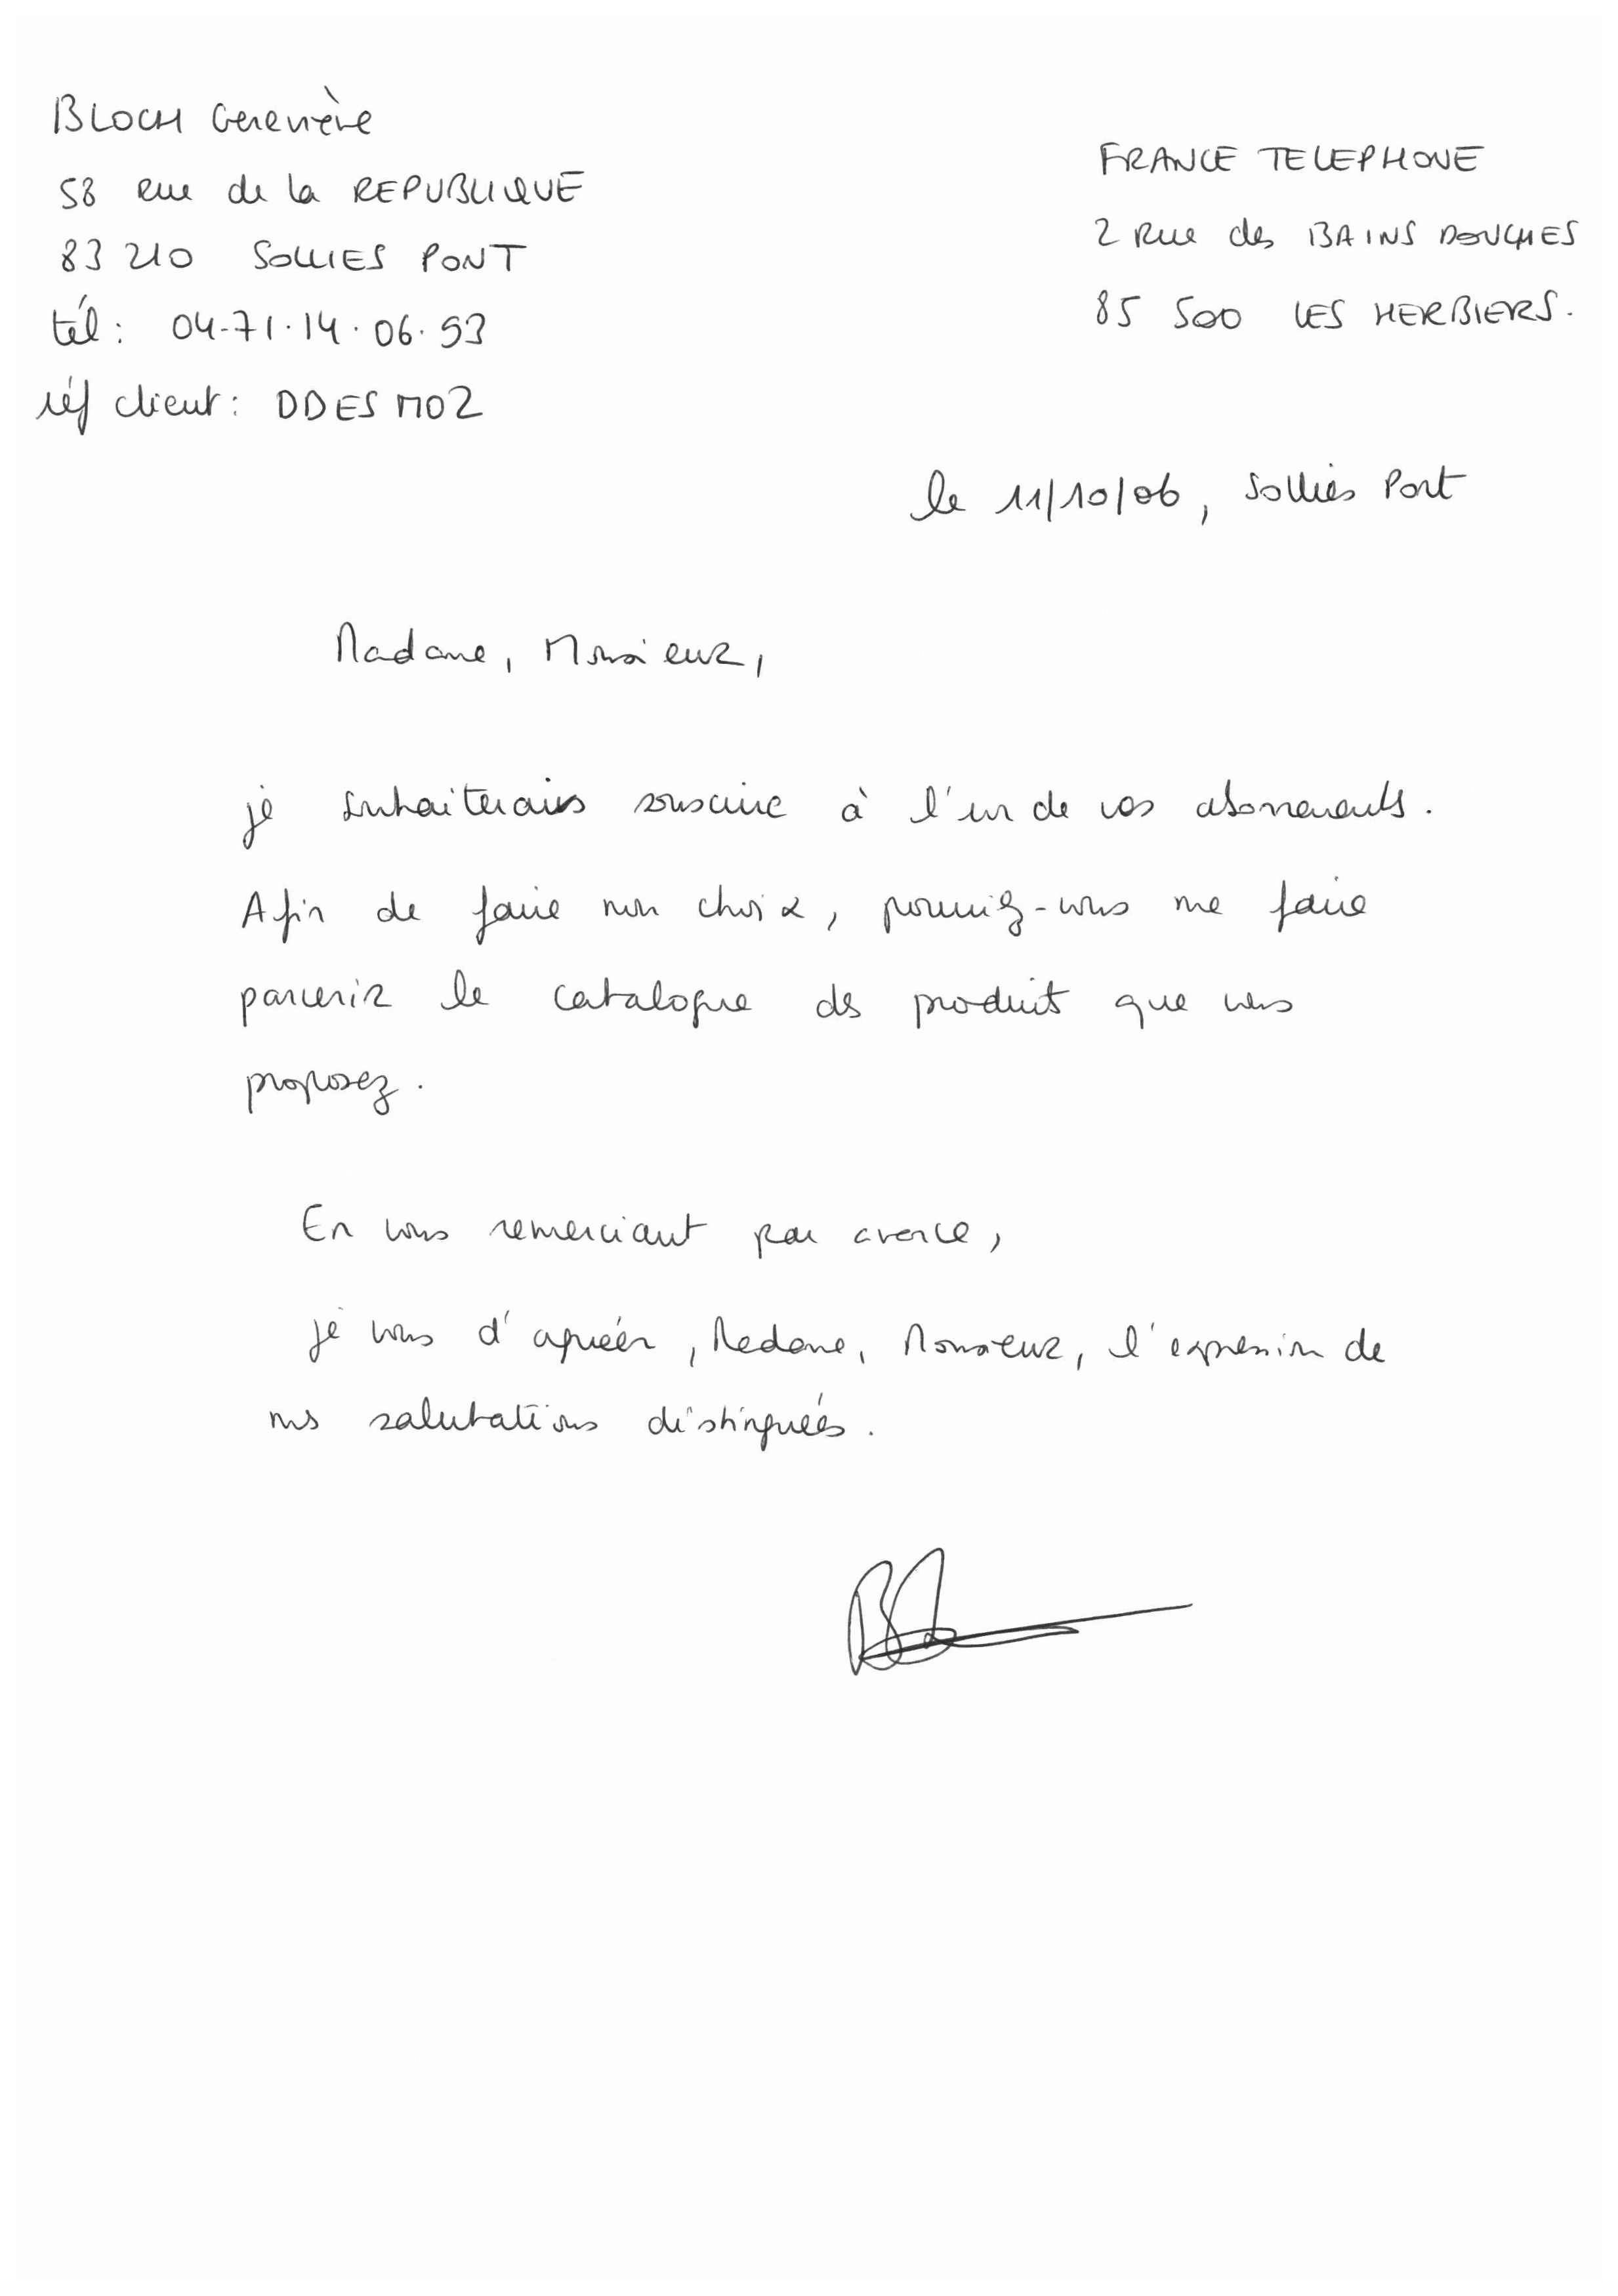 BLOCH Geneviève
58 rue de la REPUBLIQUE
83 210 SOLLIES PONT
tél : 04-71.14.06.53
réf client : DDESM02
FRANCE TELEPHONE
2 Rue des BAINS DOUCHES
85 500 LES HERBIERS.
le 11/10/06, Solliès Pont
Madame, Monsieur,
je souhaiterais souscrire à l'un de vos abonnements.
Afin de faire mon choix, pourriez-vous me faire
parvenir le catalogue des produit que vous
proposez.
En vous remerciant par avance,
je vous d'agréer, Madame, Monsieur, l'expression de
mes salutations distinguées.